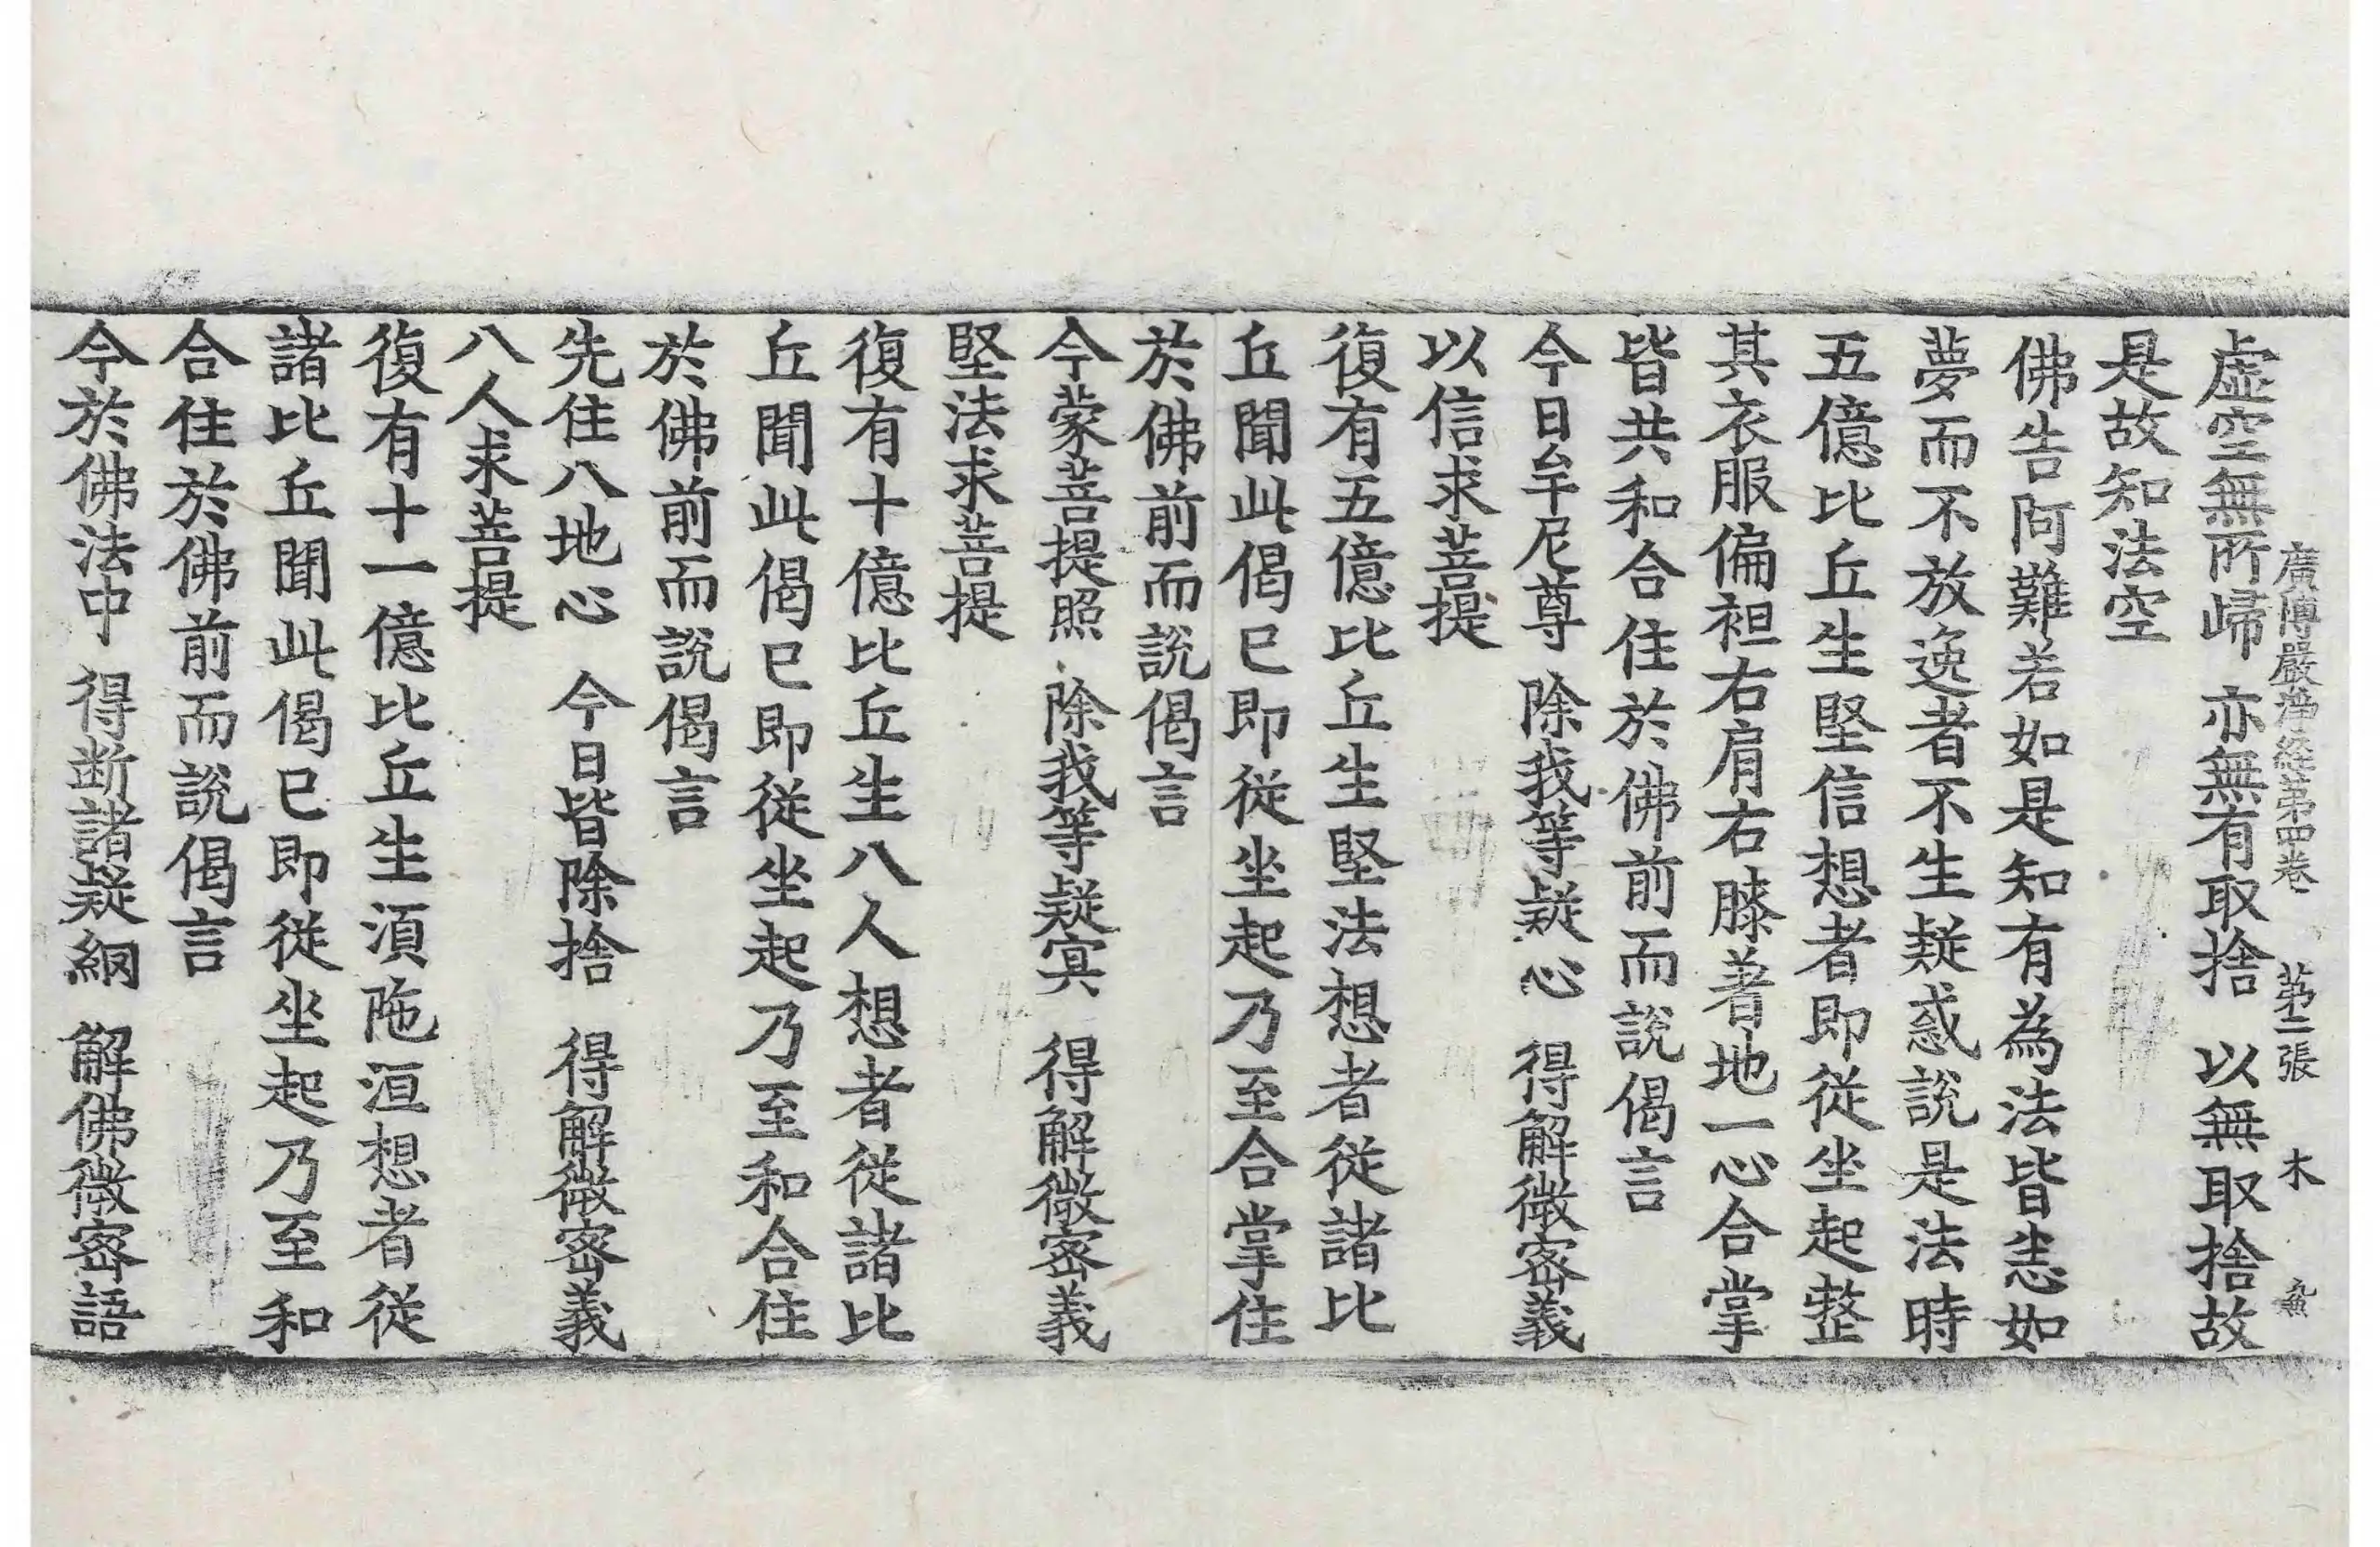 廣博嚴淨經第四卷 第二張 木
虛空無所歸 亦無有取捨 以無取捨故
是故知法空
佛告阿難若如是知有為法皆悉如
夢而不放逸者不生疑惑說是法時
五億比丘生堅信想者即從坐起整
其衣服偏袒右肩右膝著地一心合掌
皆共和合住於佛前而說偈言
今日牟尼尊 除我等疑心 得解微密義
以信求菩提
復有五億比丘生堅法想者從諸比
丘聞此偈已即從坐起乃至合掌住
於佛前而說偈言
今蒙菩提照 除我等疑㝠 得解微密義
堅法求菩提
復有十億比丘生八人想者從諸比
丘聞此偈已即從坐起乃至和合住
於佛前而說偈言
先住八地心 今日皆除捨 得解微密義
八人求菩提
復有十一億比丘生湏陁洹想者從
諸比丘聞此偈已即從坐起乃至和
合住於佛前而說偈言
今於佛法中 得断諸疑網 解佛微密語